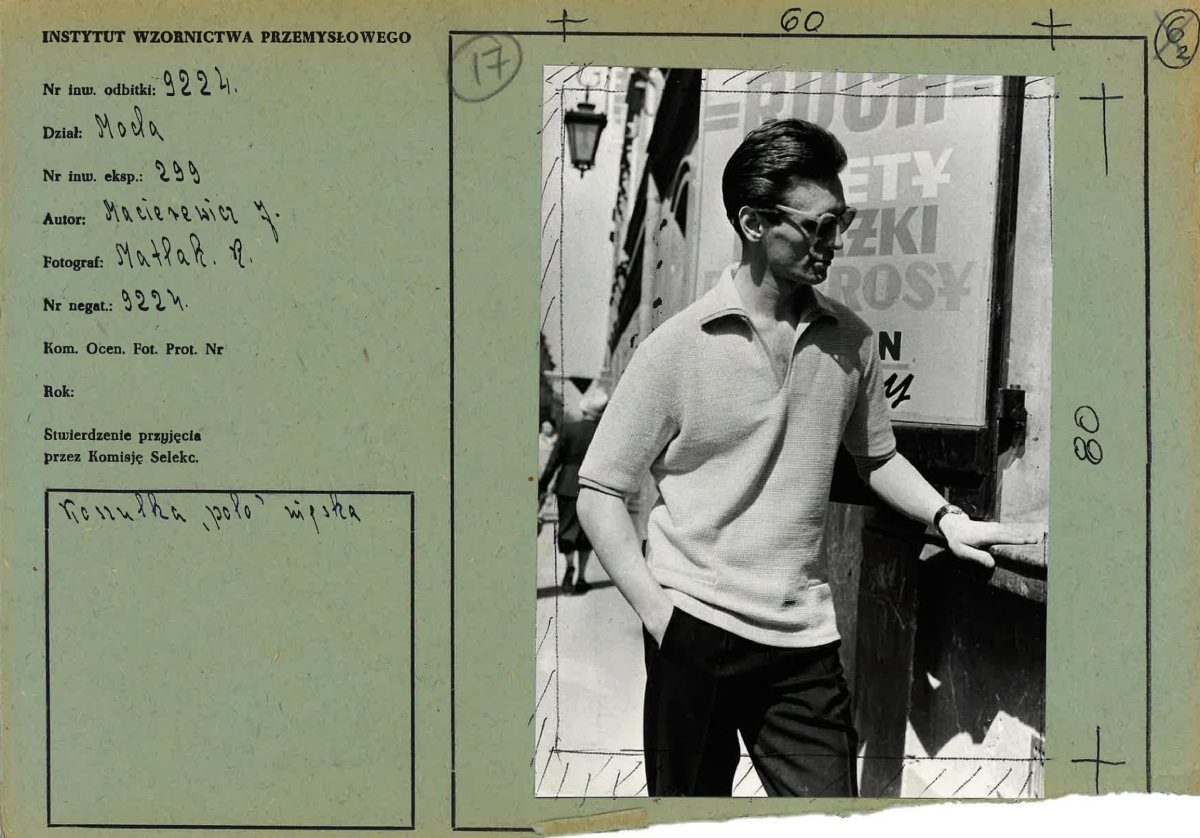 INSTYTUT WZORNICTWA PRZEMYSŁOWEGO
Nr inw. odbitki: 9224.
Dział: Moda
Nr inw. eksp.: 299
Autor: Macierewicz J.
Fotograf: Matlak. R.
Nr negat.: 9224.
Kom. Ocen. Fot. Prot. Nr
Rok:
Stwierdzenie przyjęcia
przez Komisję Selekc.
Koszulka „polo” męska
17
60
62
80
=RUCH=
ETY
ZKI
ROSY
N
y